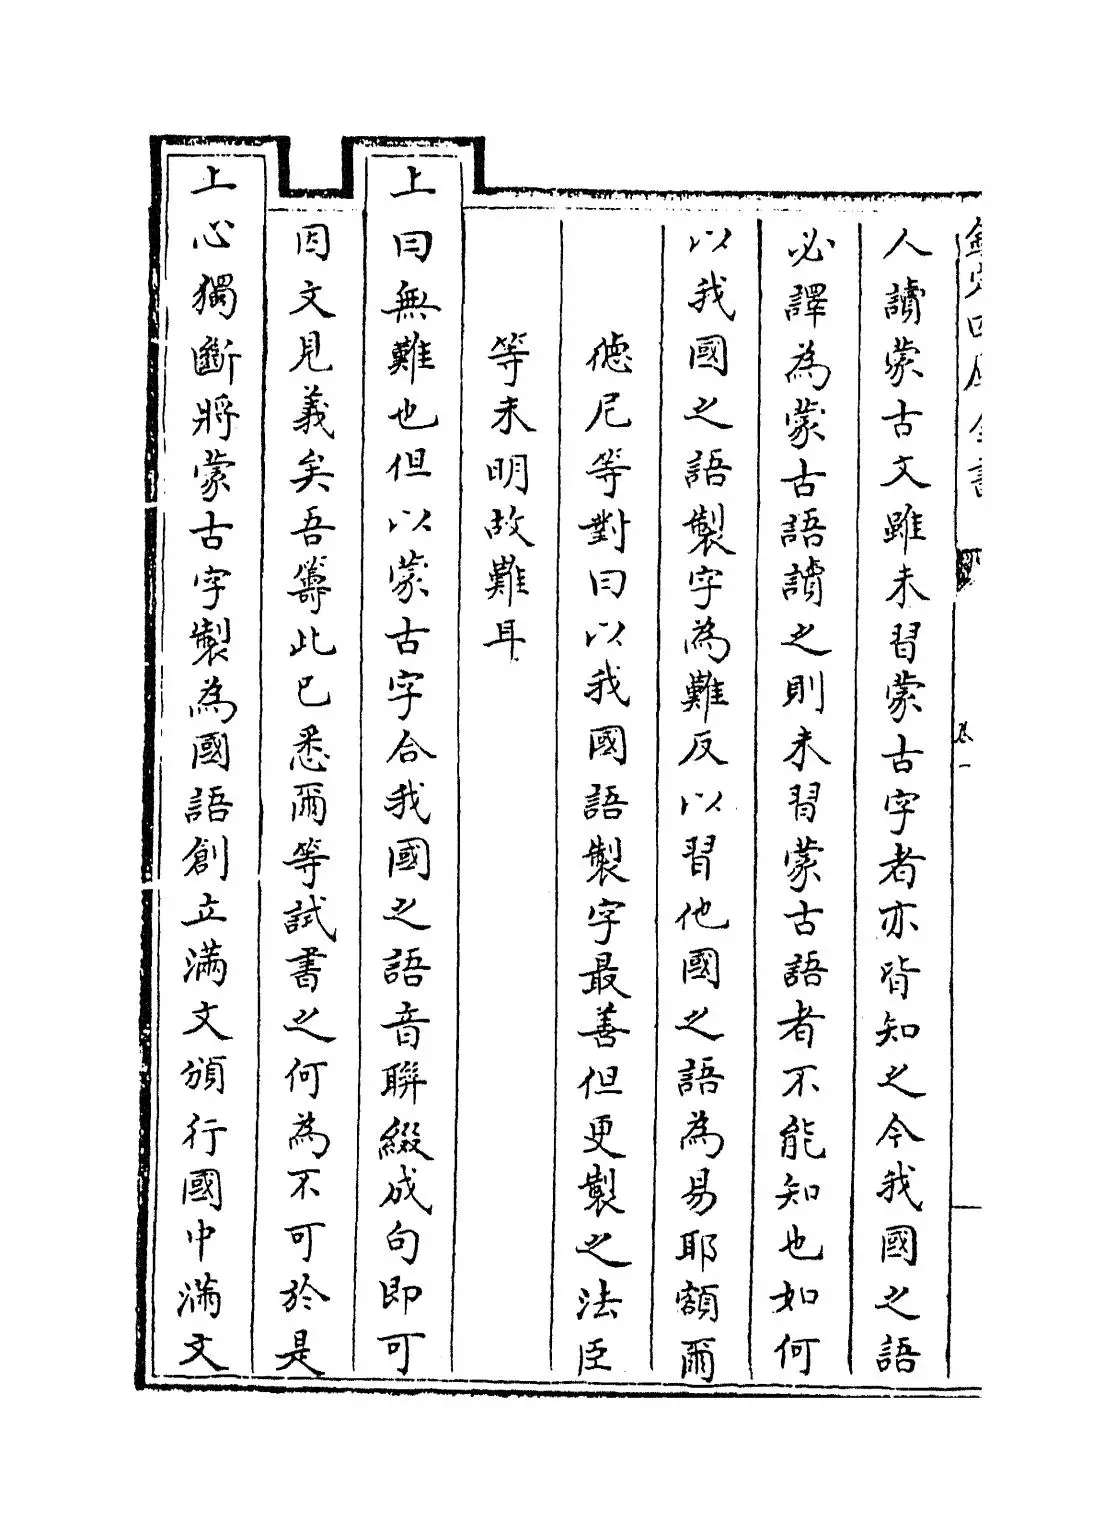 欽定四庫全書
卷一
人讀蒙古文雖未習蒙古字者亦皆知之今我國之語
必譯為蒙古語讀之則未習蒙古語者不能知也如何
以我國之語製字為難反以習他國之語為易耶額爾
徳尼等對曰以我國語製字最善但更製之法臣
等未明故難耳
上曰無難也但以蒙古字合我國之語音聯綴成句即可
因文見義矣吾籌此已悉爾等試書之何為不可於是
上心獨斷將蒙古字製為國語創立滿文頒行國中滿文